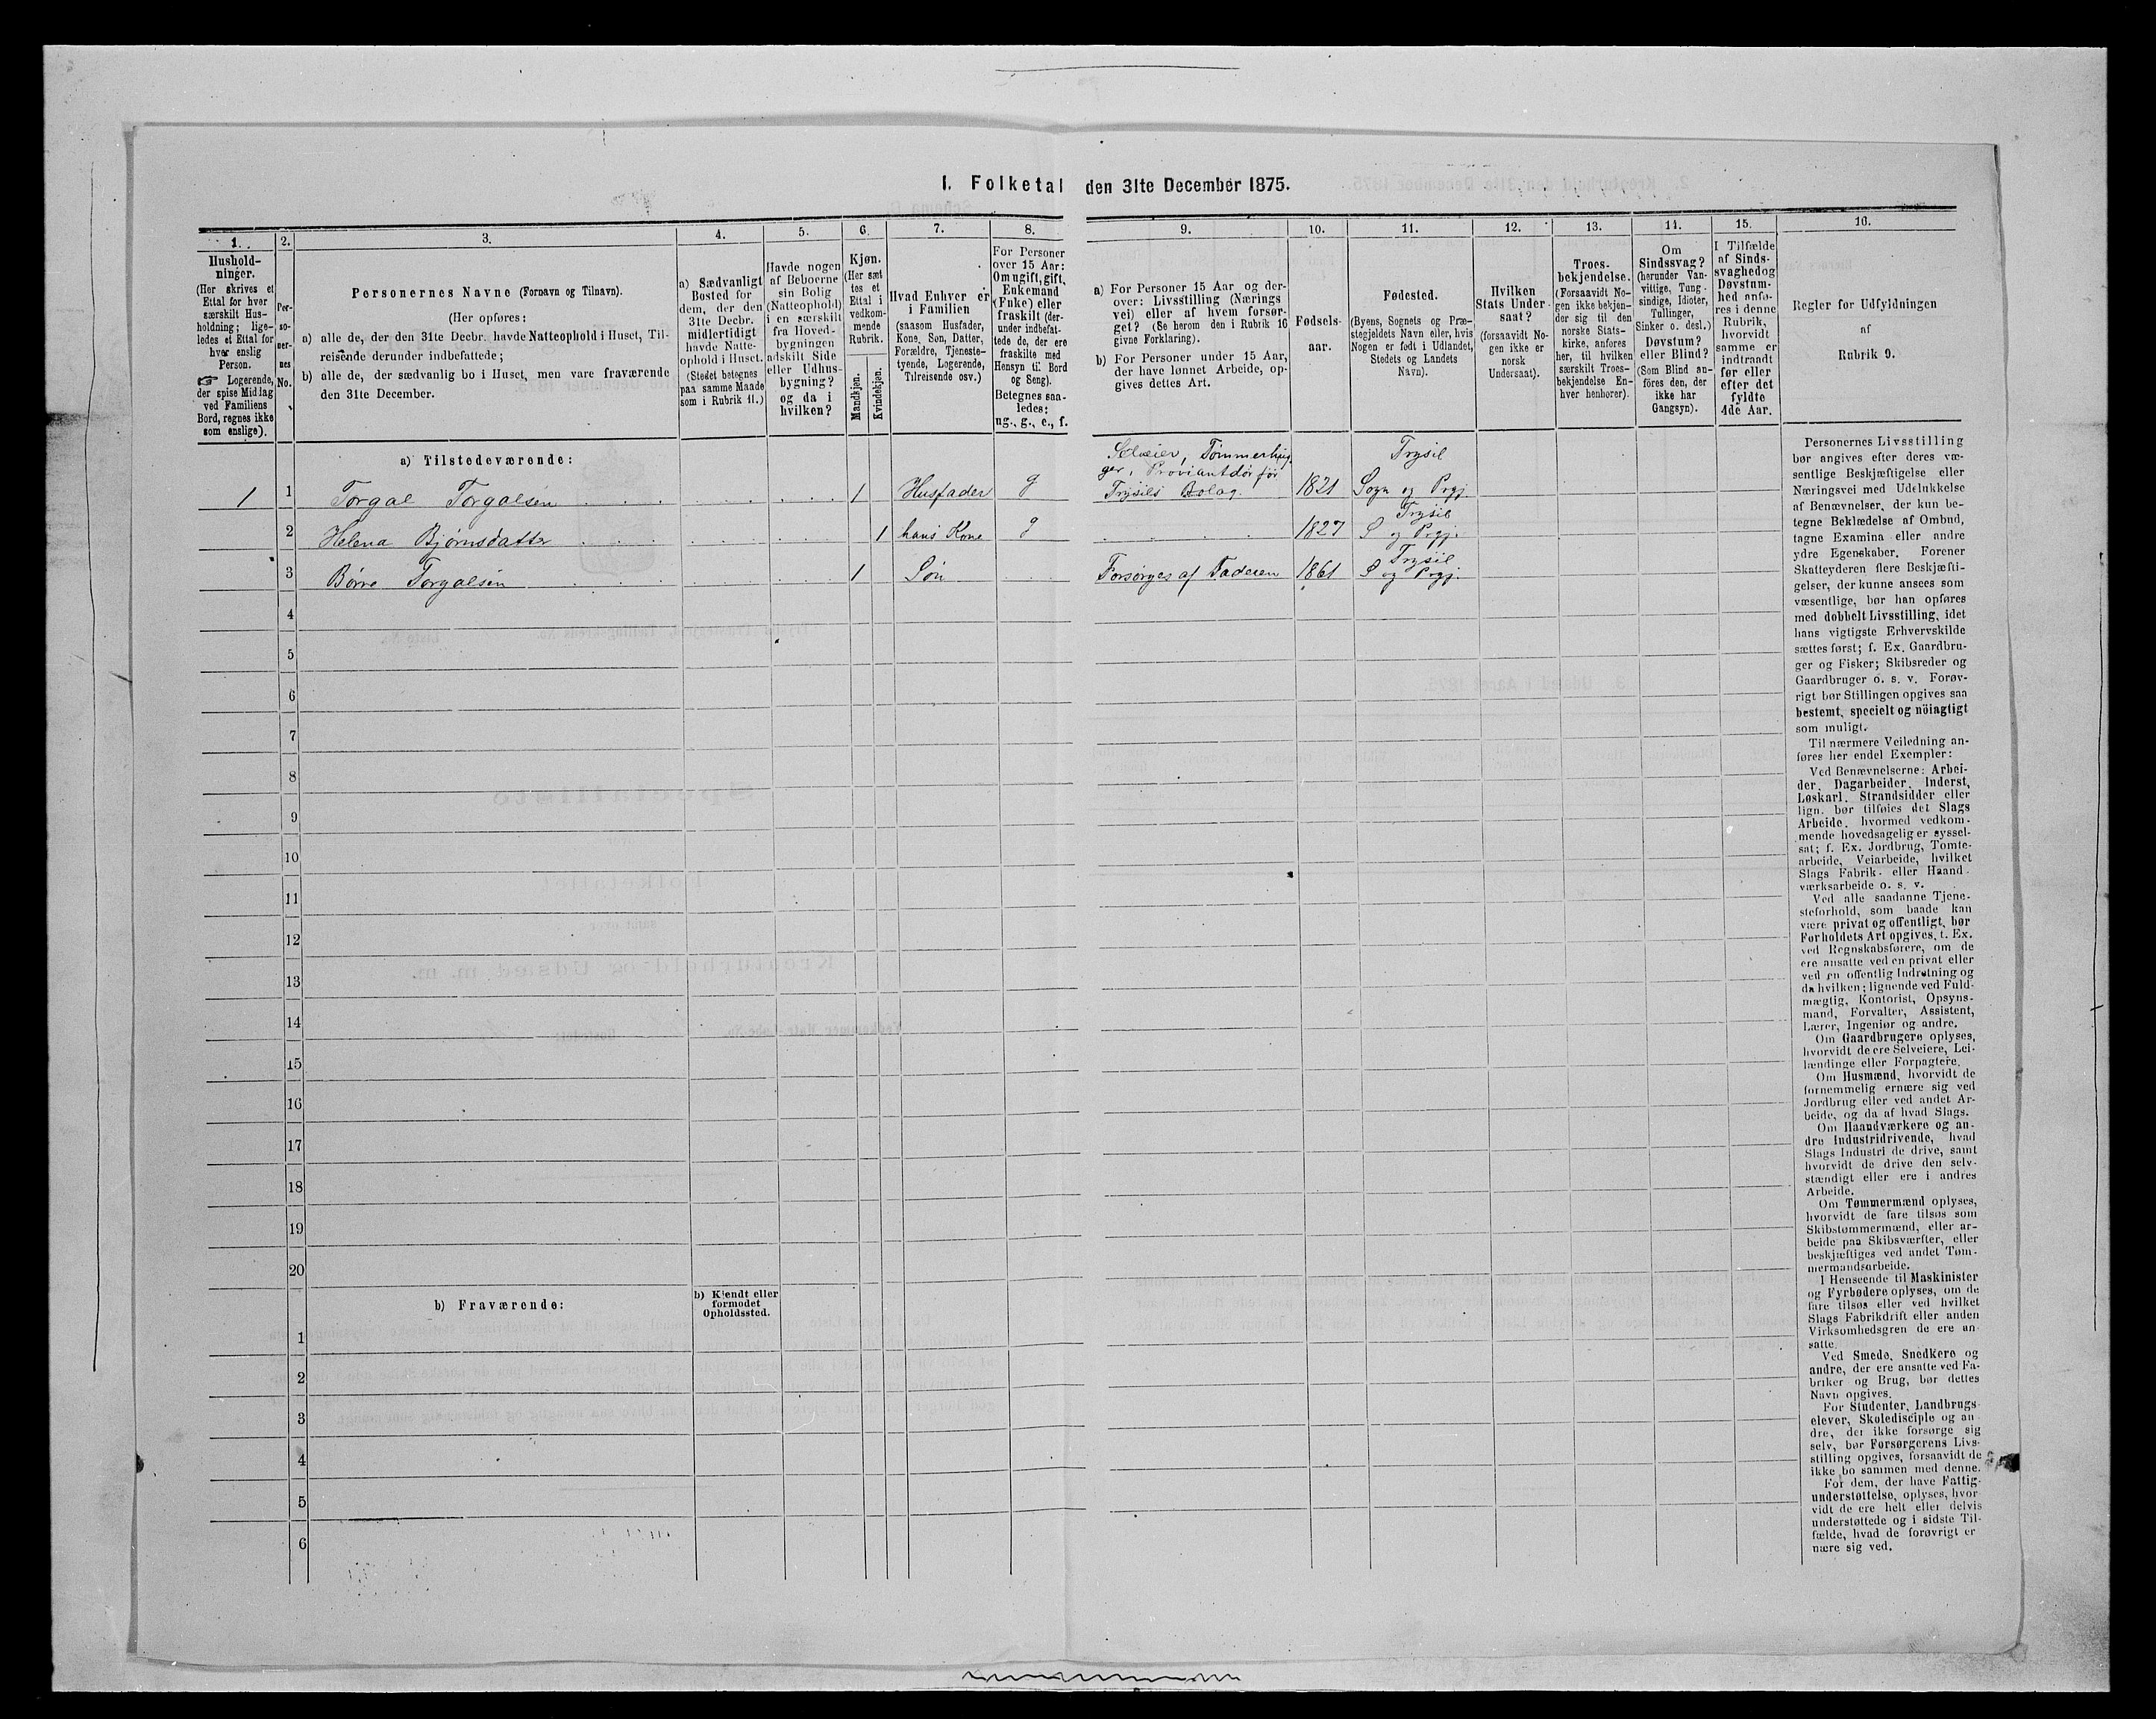 I. Folketal den 31te December 1875.
1.
Hushold-
ninger.
(Her skrives et
Ettal for hver
særskilt Hus-
holdning; lige-
ledes et Ettal for
hver enslig
Person.
☞ Logerende,
der spise Middag
ved Familiens
Bord, regnes ikke
som enslige).
2.
Per-
so-
ner-
nes
No.
3.
Personernes Navne (Fornavn og Tilnavn).
(Her opføres:
a) alle de, der den 31te Decbr. havde Natteophold i Huset, Til-
reisende derunder indbefattede;
b) alle de, der sædvanlig bo i Huset, men vare fraværende
den 31te December.
4.
a) Sædvanligt
Bosted for
dem, der den
31te Decbr.
midlertidigt
havde Natte-
ophold i Huset.
(Stedet betegnes
paa samme Maade
som i Rubrik 11.)
5.
Havde nogen
af Beboerne
sin Bolig
(Natteophold)
i en særskilt
fra Hoved-
bygningen
adskilt Side
eller Udhus-
bygning?
og da i
hvilken?
6.
Kjøn.
(Her sæt
tes et
Ettal i
vedkom-
mende
Rubrik.
Mandkjøn.
Kvindekjøn.
7.
Hvad Enhver er
i Familien
(saasom Husfader,
Kone, Søn, Datter,
Forældre, Tjeneste-
tyende, Logerende,
Tilreisende osv.)
8.
For Personer
over 15 Aar:
Om ugift, gift,
Enkemand
(Enke) eller
fraskilt (der-
under indbefat-
tede de, der ere
fraskilte med
Hensyn til Bord
og Seng).
Betegnes saa-
ledes:
ug., g., e., f.
9.
a) For Personer 15 Aar og der-
over: Livsstilling (Nærings
vei) eller af hvem forsør-
get? (Se herom den i Rubrik 16
givne Forklaring).
b) For Personer under 15 Aar,
der have lønnet Arbeide, op-
gives dettes Art.
10.
Fødsels-
aar.
11.
Fødested.
(Byens, Sognets og Præ-
stegjeldets Navn eller, hvis
Nogen er født i Udlandet,
Stedets og Landets
Navn).
12.
Hvilken
Stats Under-
saat?
(forsaavidt No-
gen ikke er
norsk
Undersaat).
13.
Troes-
bekjendelse.
(Forsaavidt No-
gen ikke bekjen-
der sig til den
norske Stats-
kirke, anføres
her, til hvilken
særskilt Troes-
bekjendelse En-
hver henhører).
14.
Om
Sindssvag?
(herunder Van-
vittige, Tung-
sindige, Idioter,
Tullinger,
Sinker o. desl.)
Døvstum?
eller Blind?
(Som Blind an-
føres den, der
ikke har
Gangsyn).
15.
I Tilfælde
af Sinds-
svaghed og
Døvstum-
hed anfø-
res i denne
Rubrik,
hvorvidt
samme er
indtraadt
før eller
efter det
fyldte
4de Aar.
16.
Regler for Udfyldningen
af
Rubrik 9.
a) Tilstedeværende:
Selveier, Tømmerhug-
ger, Proviantdør før
Trysil
1 1 Torgal Torgalsen 1 Husfader g Trysils Bolag. 1821 Sogn og Prgj
Trysil
2 Helena Bjørnsdatter 1 hans Kone g 1827 S og Prgj.
Trysil
3 Børre Torgalsen 1 Søn Forsørges af Faderen 1861 S og Prgj.
4
5
6
7
8
9
10
11
12
13
14
15
16
17
18
19
20
b) Fraværende:
b) Kjendt eller
formodet
Opholdssted.
1
2
3
4
5
6
Personernes Livsstilling
bør angives efter deres væ-
sentlige Beskjæftigelse eller
Næringsvei med Udelukkelse
af Benævnelser, der kun be-
tegne Beklædelse af Ombud,
tagne Examina eller andre
ydre Egenskaber. Forener
Skatteyderen flere Beskjæfti-
gelser, der kunne ansees som
væsentlige, bør han opføres
med dobbelt Livsstilling, idet
hans vigtigste Erhvervskilde
sættes først; f. Ex. Gaardbru-
ger og Fisker; Skibsreder og
Gaardbruger o. s. v. Forøv-
rigt bør Stillingen opgives saa
bestemt, specielt og nöiagtigt
som muligt.
Til nærmere Veiledning an-
føres her endel Exempler:
Ved Benævnelserne: Arbei-
der, Dagarbeider, Inderst,
Løskarl, Strandsidder eller
lign. bør tilføies det Slags
Arbeide, hvormed vedkom-
mende hovedsagelig er syssel-
sat; f. Ex. Jordbrug, Tomte-
arbeide, Veiarbeide, hvilket
Slags Fabrik- eller Haand-
værksarbeide o. s. v.
Ved alle saadanne Tjene-
steforhold, som baade kan
være privat og offentligt, bør
Forholdets Art opgives, t. Ex.
ved Regnskabsførere, om de
ere ansatte ved en privat eller
ved en offentlig Indretning og
da hvilken; lignende ved Fuld-
mægtig, Kontorist, Opsyns-
mand, Forvalter, Assistent,
Lærer, Ingeniør og andre.
Om Gaardbrugere oplyses,
hvorvidt de ere Selveiere, Lei-
lændinge eller Forpagtere.
Om Husmænd, hvorvidt de
fornemmelig ernære sig ved
Jordbrug eller ved andet Ar-
beide, og da af hvad Slags.
Om Haandværkere og an-
dre Industridrivende, hvad
Slags Industri de drive, samt
hvorvidt de drive den selv-
stændigt eller ere i andres
Arbeide.
Om Tømmermænd oplyses,
hvorvidt de fare tilsøs som
Skibstømmermænd, eller ar-
beide paa Skibsværfter, eller
beskjæftiges ved andet Tøm-
mermandsarbeide.
I Henseende til Maskinister
og Fyrbødere oplyses, om de
fare tilsøs eller ved hvilket
Slags Fabrikdrift eller anden
Virksomhedsgren de ere an-
satte.
Ved Smede, Snedkere og
andre, der ere ansatte ved Fa-
briker og Brug, bør dettes
Navn opgives.
For Studenter, Landbrugs-
elever, Skoledisciple og an-
dre, der ikke forsørge sig
selv, bør Forsørgerens Livs-
stilling opgives, forsaavidt de
ikke bo sammen med denne.
For dem, der have Fattig-
understøttelse, oplyses, hvor-
vidt de ere helt eller delvis
understøttede og i sidste Til-
fælde, hvad de forøvrigt er-
nære sig ved.